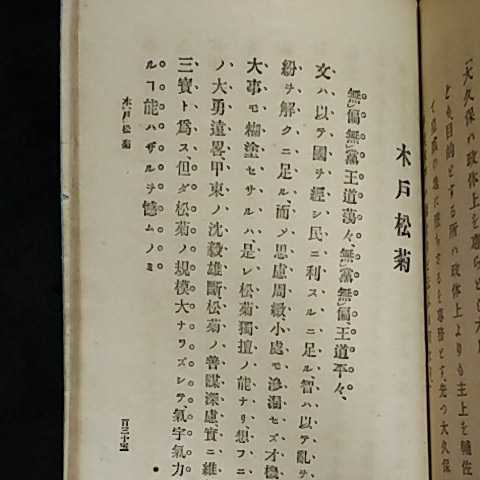 「大久保の政体上を専らとし
とし目的とする所ハ政体上よりも主上を輔佐
るを専務とす、先つ大久保
木戸松菊
無偏無黨王道蕩々、無黨無偏王道平々、
文ハ以テ國ヲ經シ民ニ利スルニ足ル、智ハ以テ亂ヲ、
紛ヲ解クニ足ル、而〆思慮周緻、小處モ滲漏セズ才機
大事モ糊塗セサルハ、是レ松菊獨擅ノ能ナリ、想フニ
ノ大勇遠畧、甲東ノ沈毅雄斷、松菊ノ善謀深慮、實ニ維
三寶ト爲ス、但ダ松菊ノ規模大ナラズシテ、氣宇氣力
ルヿ能ハザルヲ憾ムノミ
木戸松菊
百三十五